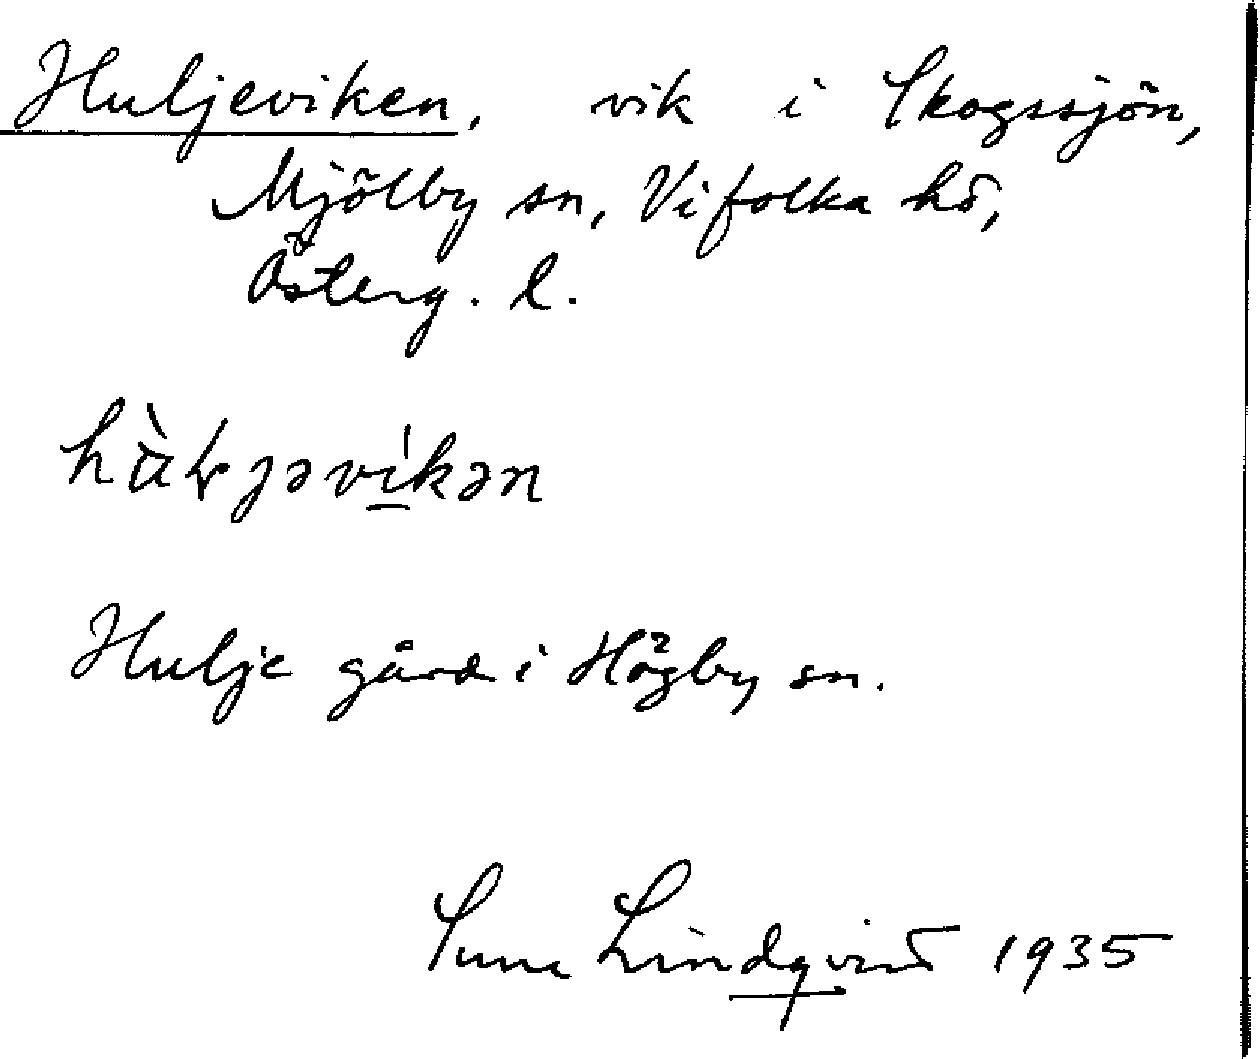 Huljeviken, vik i Skogssjön,
Mjölby sn, Vifolka hd,
Österg. l.
Hulje gård i Högby sn.
Sune Lindqvist 1935